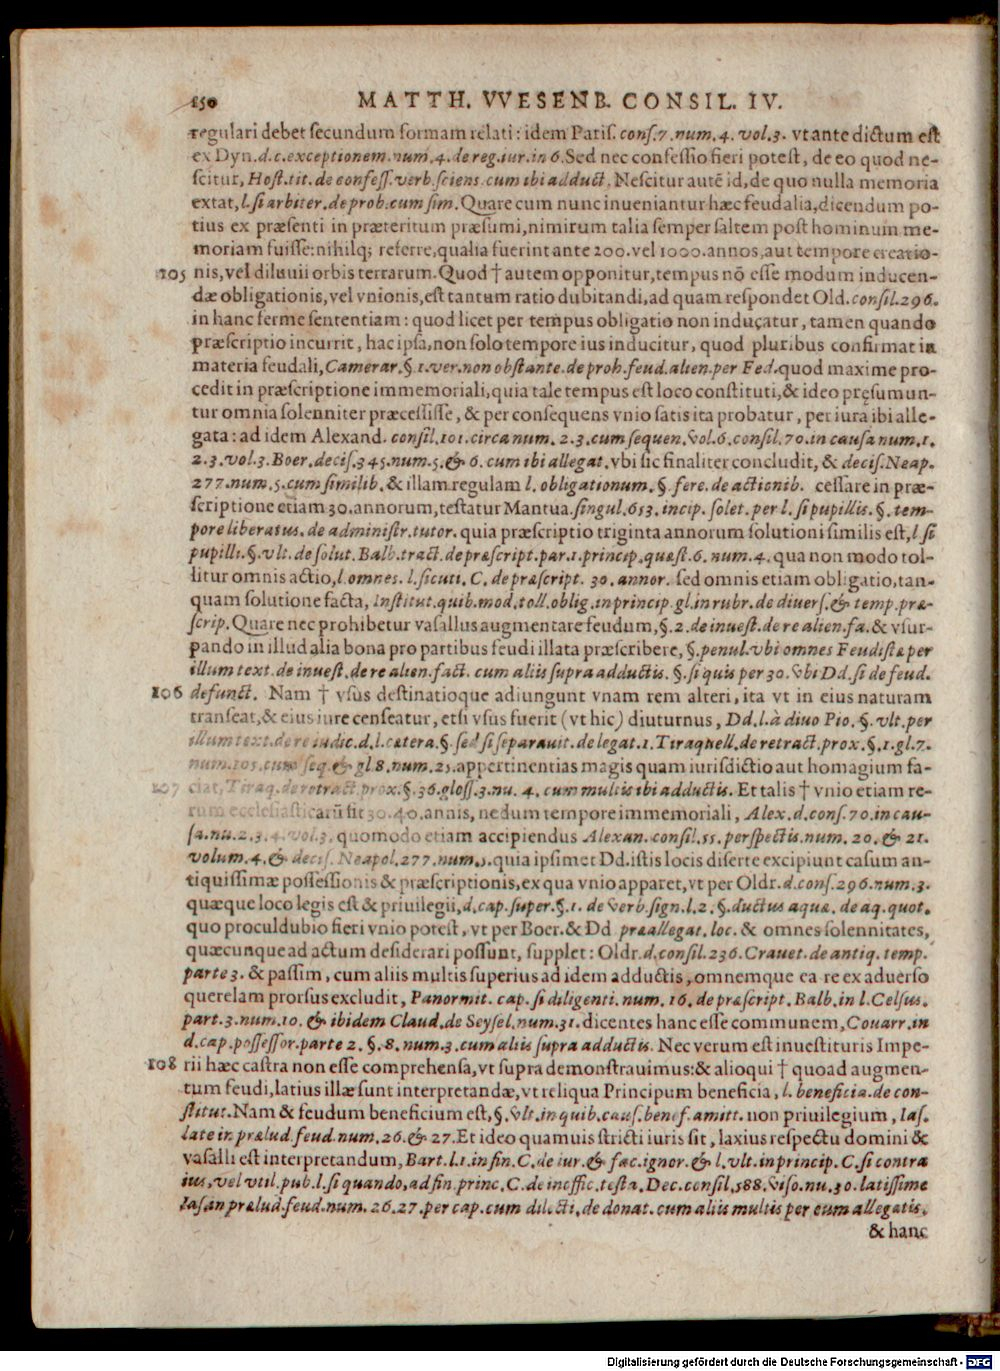 150 MATTH. VVESENB. CONSIL. IV.
regulari debet secundum formam relati: idem Paris. cons. 7. num. 4. vol. 3. vt ante dictum est
ex Dyn. d. c. exceptionem. num. 4. de reg. iur. in 6. Sed nec confessio fieri potest, de eo quod ne-
scitur, Host. tit. de confess. verb. sciens. cum ibi adduct. Nescitur autē id, de quo nulla memoria
extat, l. si arbiter. de prob. cum sim. Quare cum nunc inueniantur hæc feudalia, dicendum po-
tius ex præsenti in præteritum præsumi, nimirum talia semper saltem post hominum me-
moriam fuisse: nihilq; referre, qualia fuerint ante 200. vel 1000. annos, aut tempore creatio-
105 nis, vel diluuii orbis terrarum. Quod † autem opponitur, tempus nō esse modum inducen-
dæ obligationis, vel vnionis, est tantum ratio dubitandi, ad quam respondet Old. consil. 296.
in hanc ferme sententiam: quod licet per tempus obligatio non inducatur, tamen quando
præscriptio incurrit, hac ipsa, non solo tempore ius inducitur, quod pluribus confirmat in
materia feudali, Camerar. §. 1. ver. non obstante. de proh. feud. alien. per Fed. quod maxime pro-
cedit in præscriptione immemoriali, quia tale tempus est loco constituti, & ideo pręsumun-
tur omnia solenniter præcessisse, & per consequens vnio satis ita probatur, per iura ibi alle-
gata: ad idem Alexand. consil. 101. circa num. 2. 3. cum sequen. vol. 6. consil. 70. in causa num. 1.
2. 3. vol. 3. Boer. decis. 345. num. 5. & 6. cum ibi allegat. vbi sic finaliter concludit, & decis. Neap.
277. num. 5. cum similib. & illam regulam l. obligationum. §. fere. de actionib. cessare in præ-
scriptione etiam 30. annorum, testatur Mantua. singul. 653. incip. solet. per l. si pupillis. §. tem-
pore liberatus. de administr. tutor. quia præscriptio triginta annorum solutioni similis est, l. si
pupilli. §. vlt. de solut. Balb. tract. de præscript. par. 1. princip. quæst. 6. num. 4. qua non modo tol-
litur omnis actio, l. omnes. l. sicuti. C. de præscript. 30. annor. sed omnis etiam obligatio, tan-
quam solutione facta, Institut. quib. mod. toll. oblig. in princip. gl. in rubr. de diuers. & temp. præ-
scrip. Quare nec prohibetur vasallus augmentare feudum, §. 2. de inuest. de re alien. fa. & vsur-
pando in illud alia bona pro partibus feudi illata præscribere, §. penul. vbi omnes Feudistæ per
illum text. de inuest. de re alien. fact. cum aliis supra adductis. §. si quis per 30. vbi Dd. si de feud.
106 defunct. Nam † vsus destinatioque adiungunt vnam rem alteri, ita vt in eius naturam
transeat, & eius iure censeatur, etsi vsus fuerit (vt hic) diuturnus, Dd. l. à diuo Pio. §. vlt. per
illum text. de re iudic. d. l. cætera. §. sed si separauit. de legat. 1. Tiraquell. de retract. prox. §. 1. gl. 7.
num. 105. cum seq. & gl. 8. num. 25. appertinentias magis quam iurisdictio aut homagium fa-
107 ciat, Tiraq. de retract. prox. §. 36. gloss. 3. nu. 4. cum multis ibi adductis. Et talis † vnio etiam re-
rum ecclesiasticarū fit 30. 40. annis, nedum tempore immemoriali, Alex. d. cons. 70. in cau-
sa. nu. 2. 3. 4. vol. 3. quomodo etiam accipiendus Alexan. consil. 55. perspectis. num. 20. & 21.
volum. 4. & decis. Neapol. 277. num. 5. quia ipsimet Dd. istis locis diserte excipiunt casum an-
tiquissimæ possessionis & præscriptionis, ex qua vnio apparet, vt per Oldr. d. cons. 296. num. 3.
quæque loco legis est & priuilegii, d. cap. super. §. 1. de verb. sign. l. 2. §. ductus aquæ. de aq. quot.
quo proculdubio fieri vnio potest, vt per Boer. & Dd præallegat. loc. & omnes solennitates,
quæcunque ad actum desiderari possunt, supplet: Oldr. d. consil. 236. Crauet. de antiq. temp.
parte 3. & passim, cum aliis multis superius ad idem adductis, omnemque ea re ex aduerso
querelam prorsus excludit, Panormit. cap. si diligenti. num. 16. de præscript. Balb. in l. Celsus.
part. 3. num. 10. & ibidem Claud. de Seysel. num. 31. dicentes hanc esse communem, Couarr. in
d. cap. possessor. parte 2. §. 8. num. 3. cum aliis supra adductis. Nec verum est inuestituris Impe-
108 rii hæc castra non esse comprehensa, vt supra demonstrauimus: & alioqui † quoad augmen-
tum feudi, latius illæ sunt interpretandæ, vt reliqua Principum beneficia, l. beneficia. de con-
stitut. Nam & feudum beneficium est, §. vlt. in quib. caus. benef. amitt. non priuilegium, Ias.
late in prælud. feud. num. 26. & 27. Et ideo quamuis stricti iuris sit, laxius respectu domini &
vasalli est interpretandum, Bart. l. 1. in fin. C. de iur. & fac. ignor. & l. vlt. in princip. C. si contra
ius, vel vtil. pub. l. si quando, ad fin. princ. C. de inoffic. testa. Dec. consil. 588. viso. nu. 30. latissime
Ias. in prælud. feud. num. 26. 27. per cap. cum dilecti, de donat. cum aliis multis per eum allegatis.
& hanc
Digitalisierung gefördert durch die Deutsche Forschungsgemeinschaft - DFG